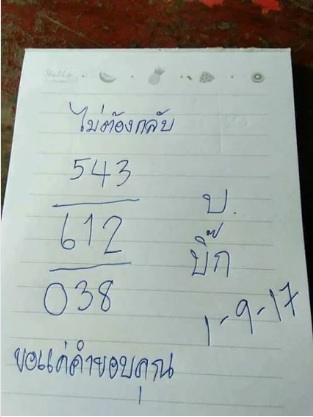 Hello
ไม่ต้องกลับ
543
612
038
บ.
บิ๊ก
1-9-17
ขอแค่คำขอบคุณ